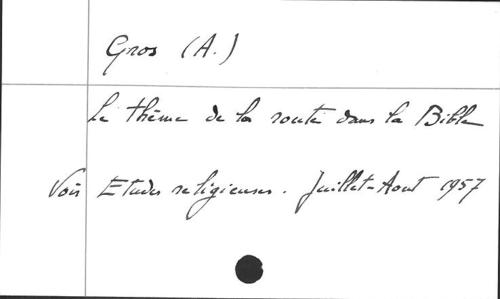 Gros (A.)
Le thème de la route dans la Bible
Voir Etudes religieuses. Juillet-Aout 1957